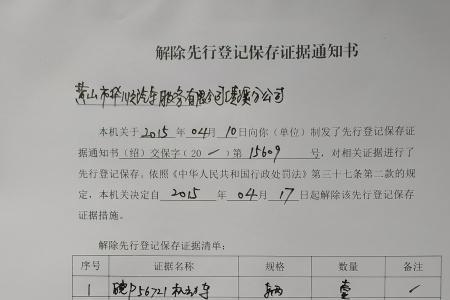 解除先行登记保存证据通知书
黄山市华顺汽车服务有限公司(黄溪)分公司
本机关于2015年04月10日向你（单位）制发了先行登记保存证
据通知书（绍）交保字（20 ）第15609号，对相关证据进行了
先行登记保存。依照《中华人民共和国行政处罚法》第三十七条第二款的规
定，本机关决定自2015年04月17日起解除该先行登记保存
证据措施。
解除先行登记保存证据清单：
序号 证据名称 规格 数量 备注
1 皖P56721 车 辆 壹 /